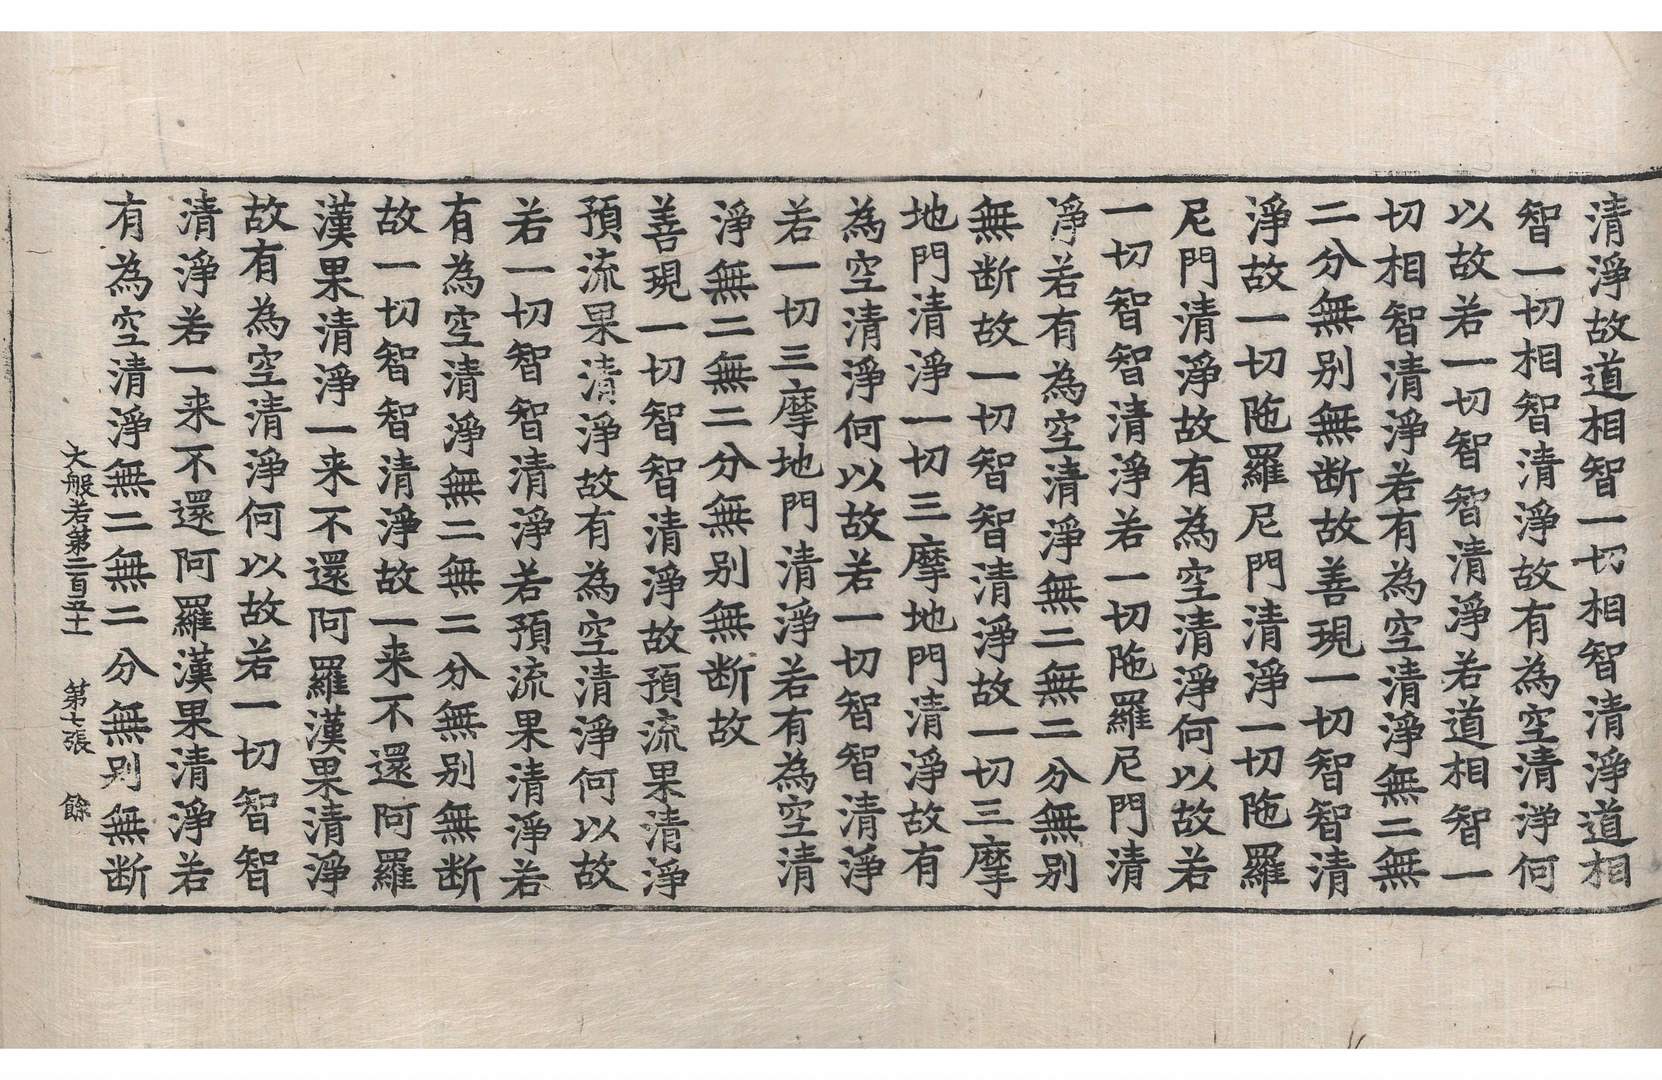 清淨故道相智一切相智清淨道相
智一切相智清淨故有為空清淨何
以故若一切智智清淨若道相智一
切相智清淨若有為空清淨無二無
二分無别無断故善現一切智智清
淨故一切陁羅尼門清淨一切陁羅
尼門清淨故有為空清淨何以故若
一切智智清淨若一切陁羅尼門清
淨若有為空清淨無二無二分無别
無断故一切智智清淨故一切三摩
地門清淨一切三摩地門清淨故有
為空清淨何以故若一切智智清淨
若一切三摩地門清淨若有為空清
淨無二無二分無别無断故
善現一切智智清淨故預流果清淨
預流果清淨故有為空清淨何以故
若一切智智清淨若預流果清淨若
有為空清淨無二無二分無别無断
故一切智智清淨故一来不還阿羅
漢果清淨一来不還阿羅漢果清淨
故有為空清淨何以故若一切智智
清淨若一来不還阿羅漢果清淨若
有為空清淨無二無二分無别無断
大般若第二百五十一 第七張 餘